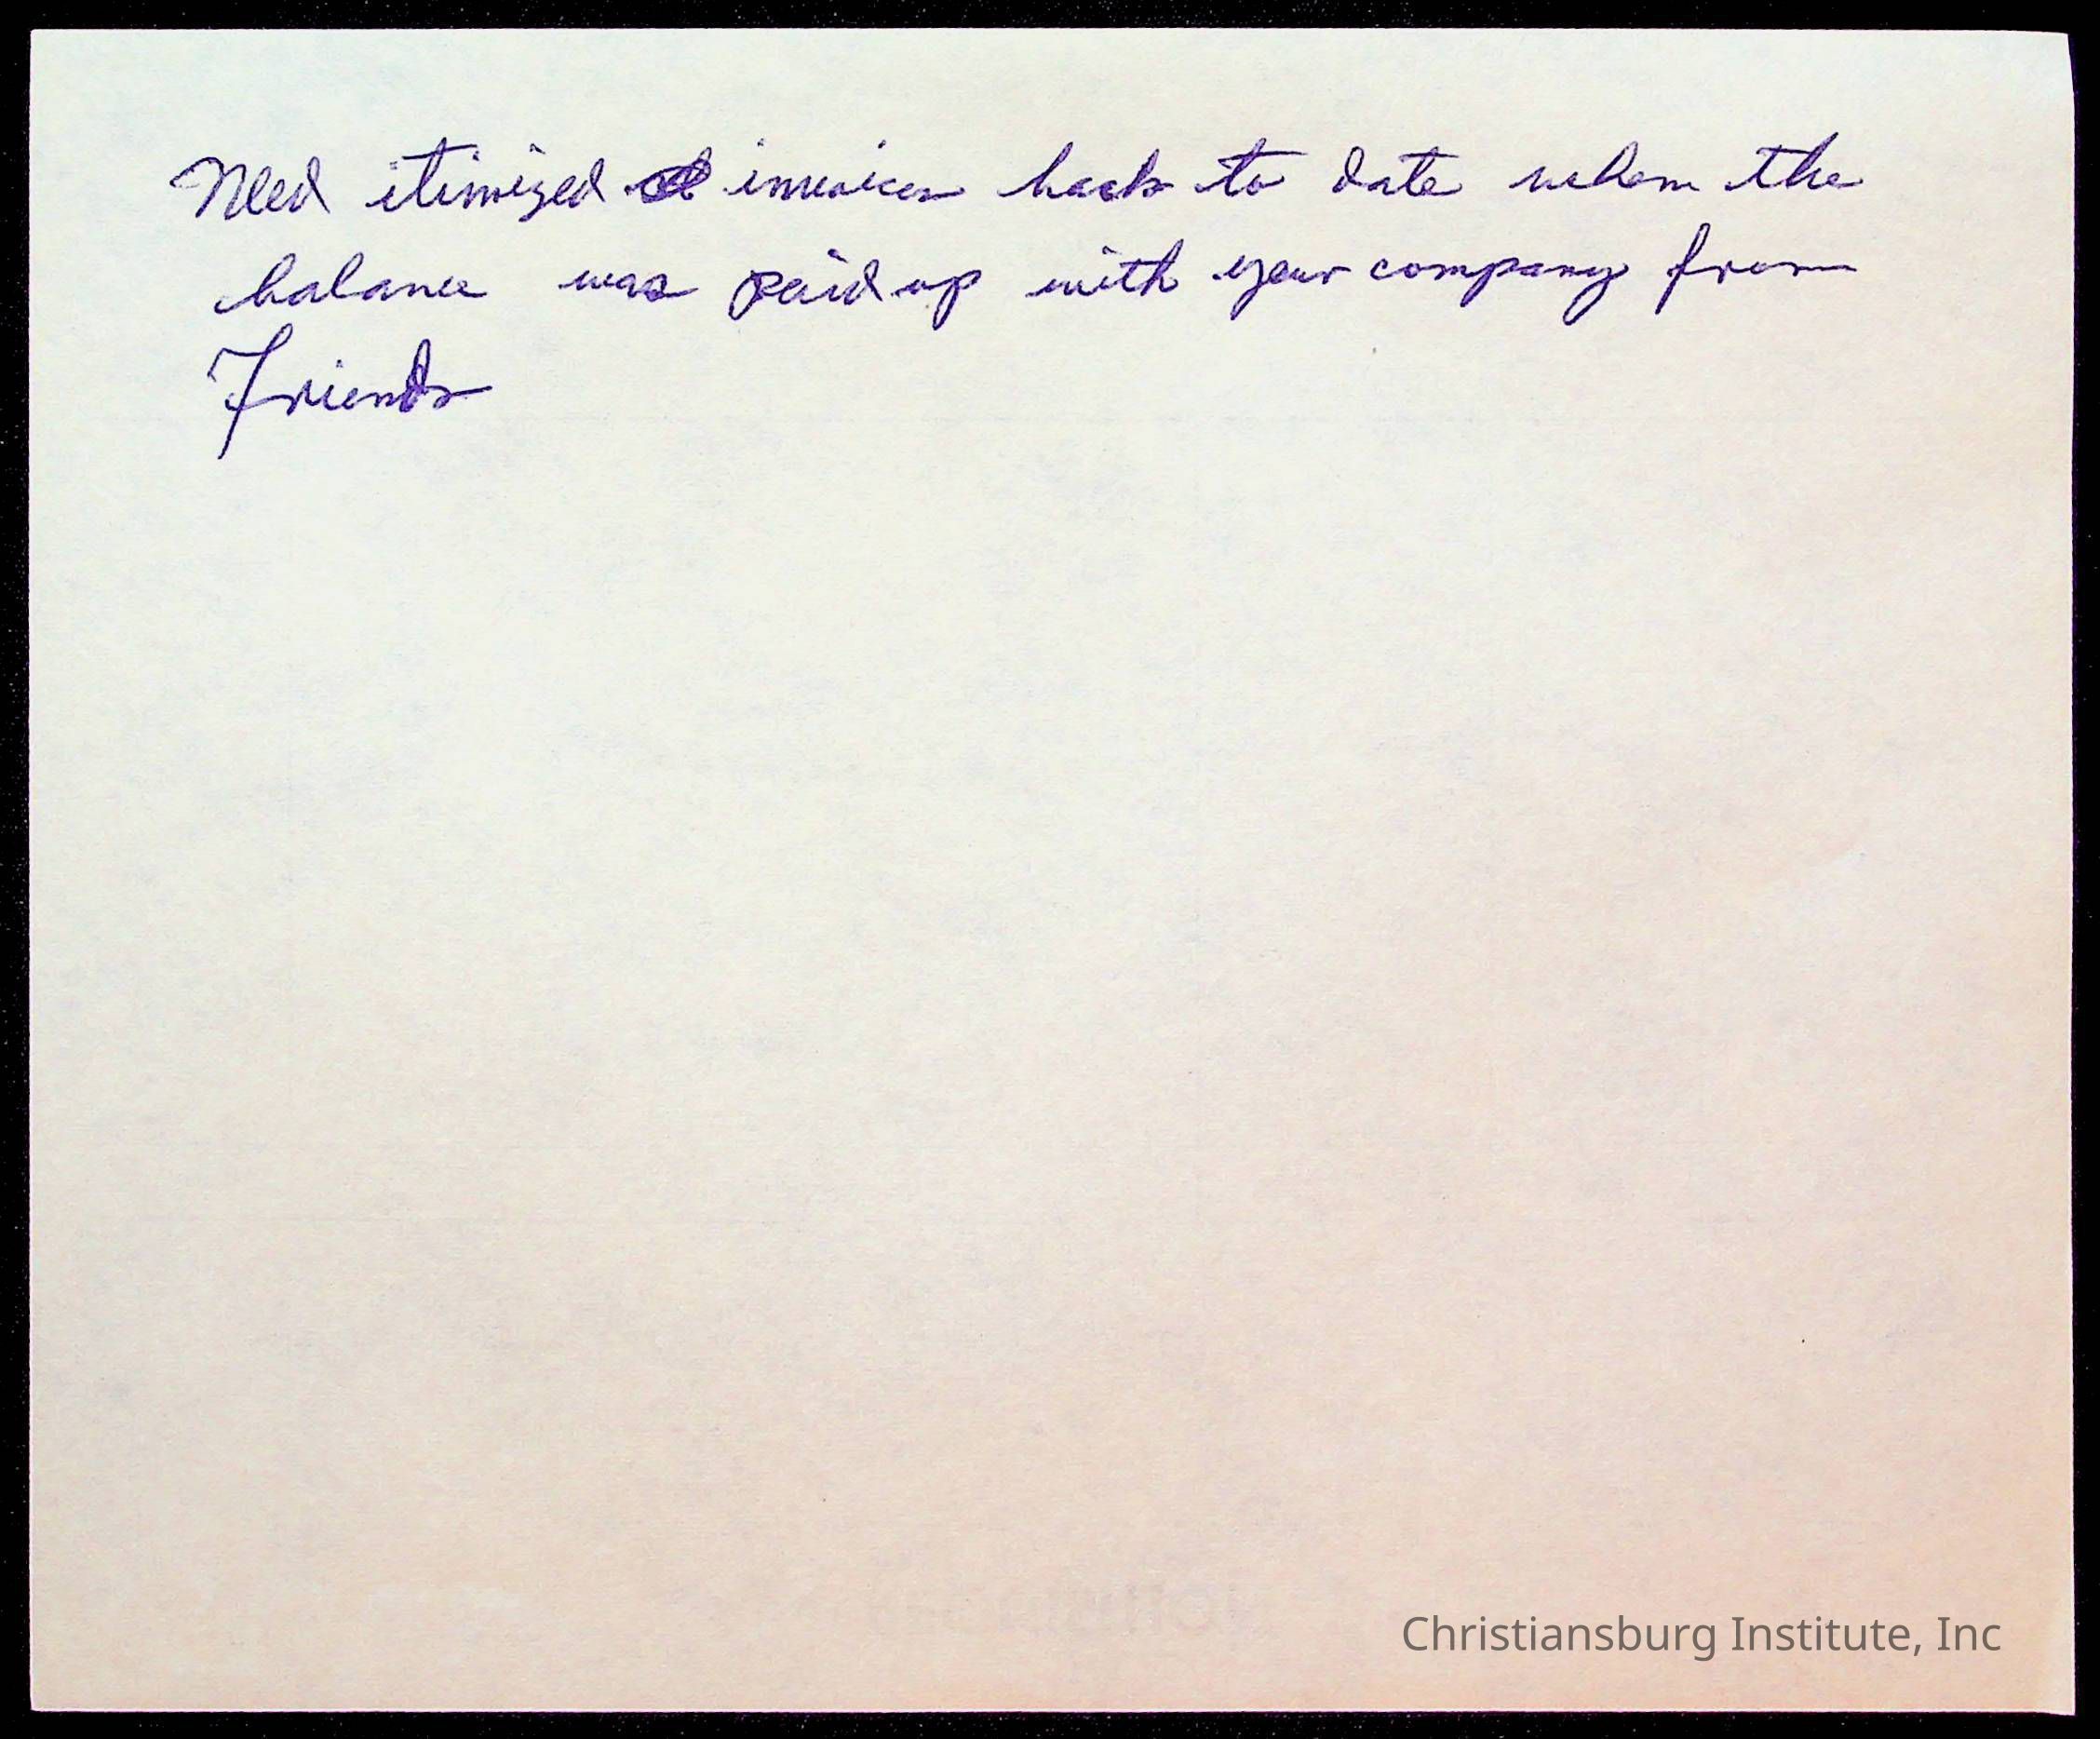 Need itimized invoices back to date when the
balance was paid up with your company from
Friends
Christiansburg Institute, Inc